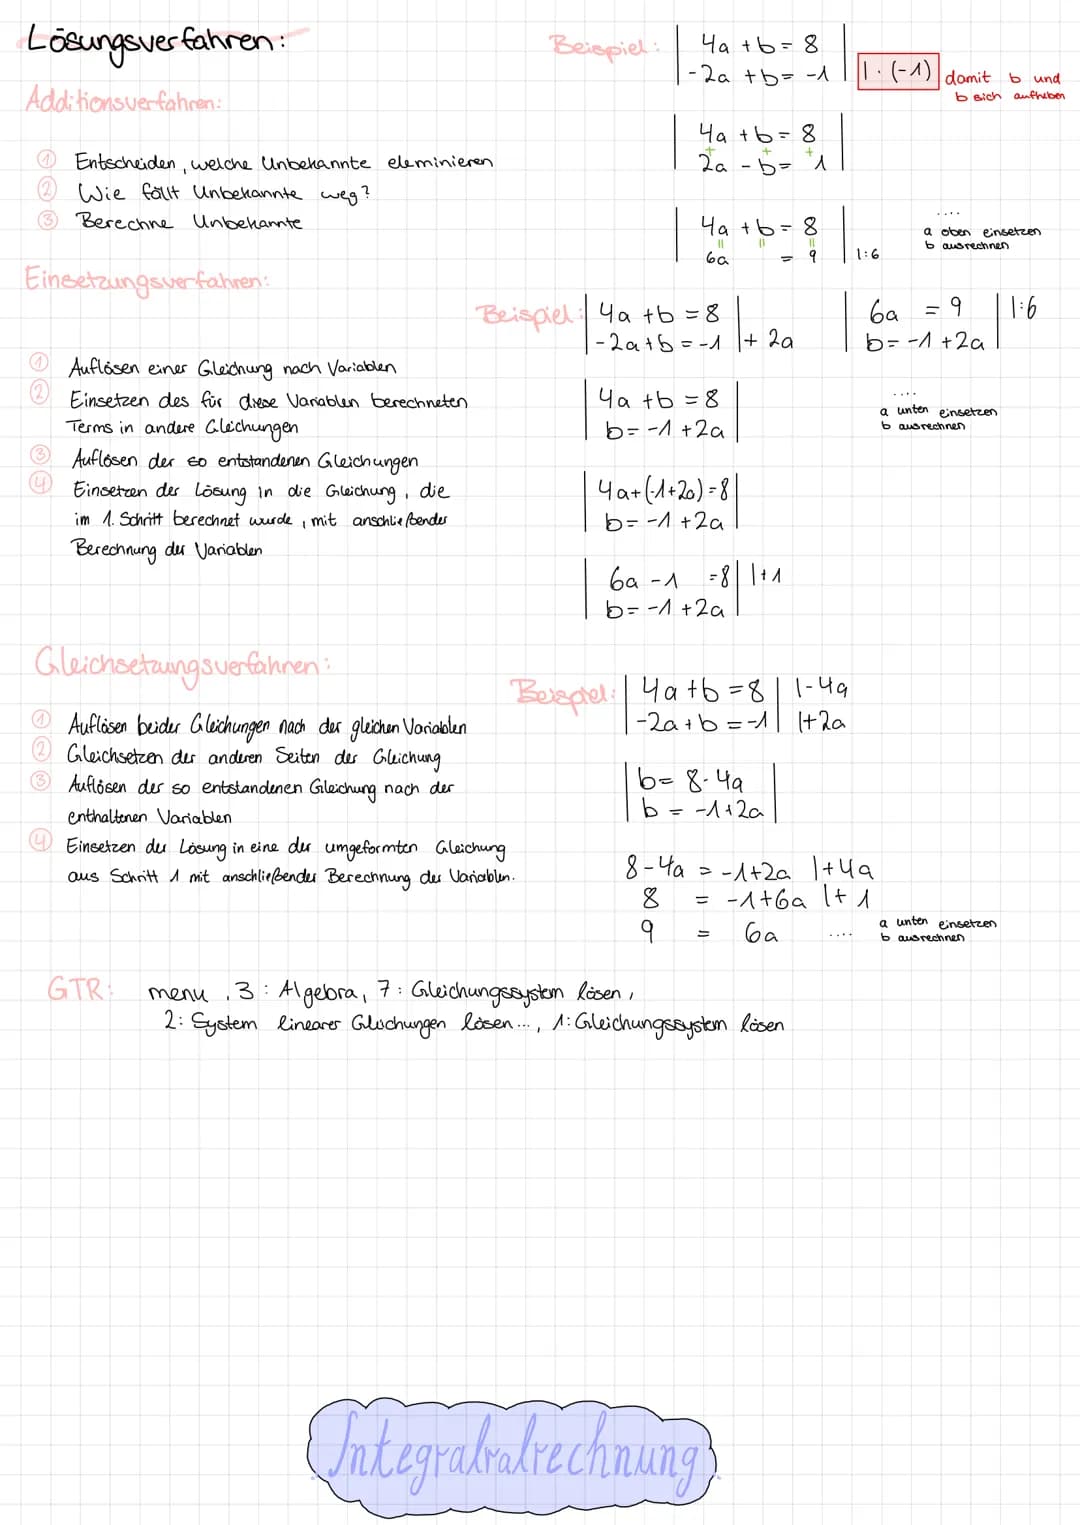 Lösungsverfahren:
Additionsverfahren:
① Entscheiden, welche Unbekannte eleminieren
② Wie fällt Unbekannte weg?
③ Berechne Unbekannte
Beispiel: | 4a + b = 8 |
| -2a + b = -1 | | · (-1) damit b und
b sich aufheben
| 4a + b = 8 |
+ + +
| 2a - b = 1 |
| 4a + b = 8 |
|| || ||
| 6a = 9 | | :6
....
a oben einsetzen
b ausrechnen
Einsetzungsverfahren:
① Auflösen einer Gleichung nach Variablen
② Einsetzen des für diese Variablen berechneten
Terms in andere Gleichungen
③ Auflösen der so entstandenen Gleichungen
④ Einsetzen der Lösung in die Gleichung, die
im 1. Schritt berechnet wurde, mit anschließender
Berechnung der Variablen
Beispiel: | 4a + b = 8 |
| -2a + b = -1 | + 2a
| 4a + b = 8 |
| b = -1 + 2a |
| 4a + (-1+2a) = 8 |
| b = -1 + 2a |
| 6a - 1 = 8 | | +1
| b = -1 + 2a |
| 6a = 9 | | :6
| b = -1 + 2a |
....
a unten einsetzen
b ausrechnen
Gleichsetzungsverfahren:
① Auflösen beider Gleichungen nach der gleichen Variablen
② Gleichsetzen der anderen Seiten der Gleichung
③ Auflösen der so entstandenen Gleichung nach der
enthaltenen Variablen
④ Einsetzen der Lösung in eine der umgeformten Gleichung
aus Schritt 1 mit anschließender Berechnung der Variablen.
Beispiel: | 4a + b = 8 | | -4a
| -2a + b = -1 | | +2a
| b = 8 - 4a |
| b = -1 + 2a |
8 - 4a = -1 + 2a | +4a
8 = -1 + 6a | + 1
9 = 6a .... a unten einsetzen
b ausrechnen
GTR: menu, 3: Algebra, 7: Gleichungssystem lösen,
2: System linearer Gleichungen lösen..., 1: Gleichungssystem lösen
Integralralrechnung